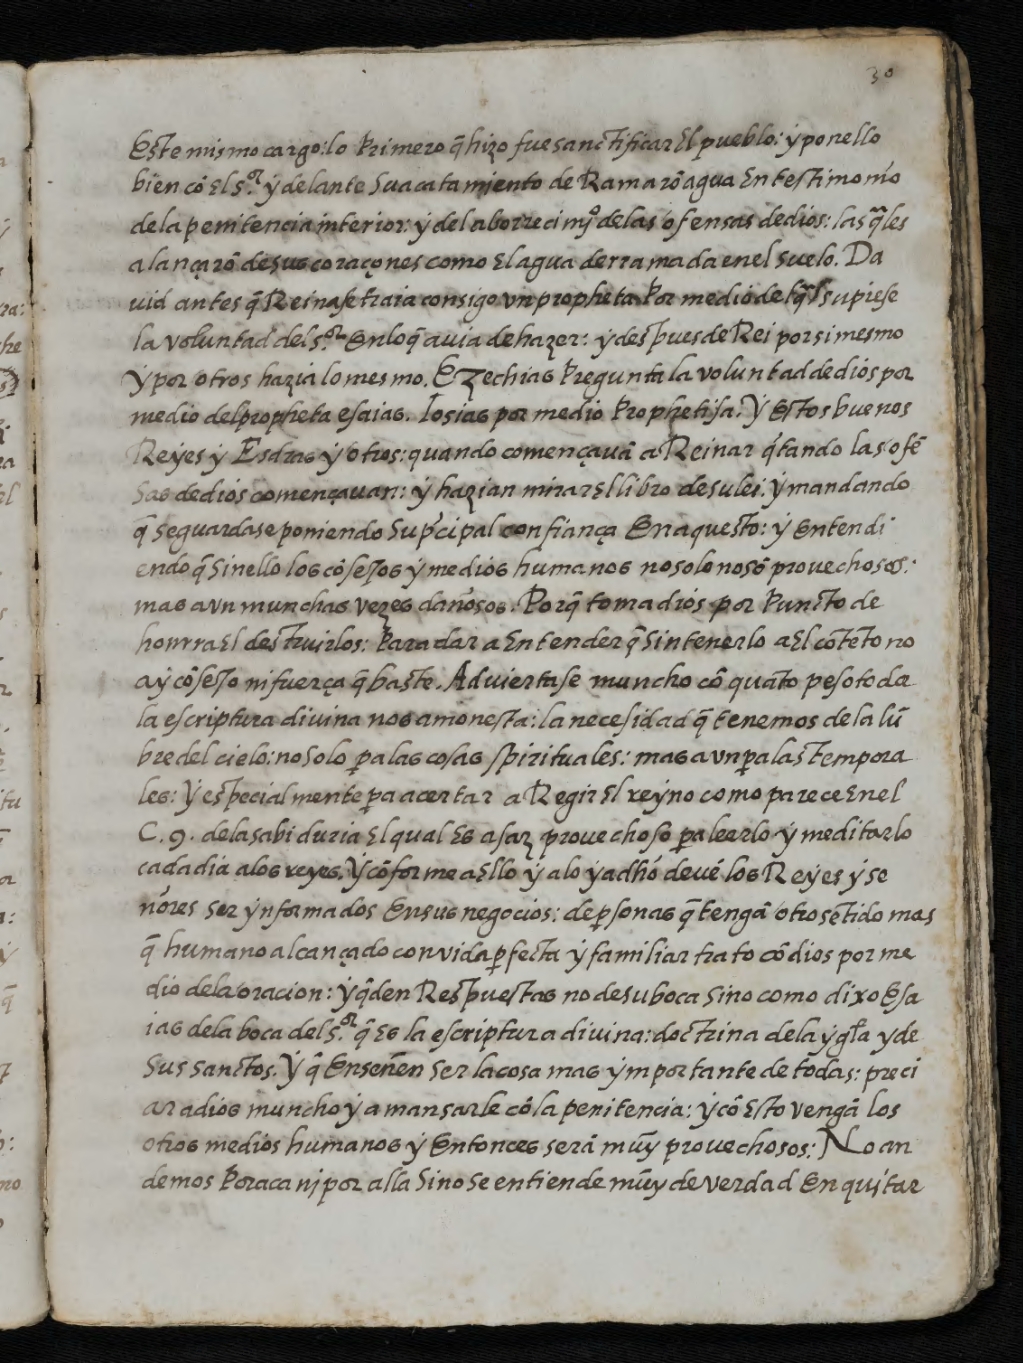 30
Este mismo cargo: lo primero q̃ hizo fue sanctificar El pueblo: ẏ ponello
bien cõ El S.or ẏ delante Su acatamiento deRamarõ agua En testimonio
dela penitencia interior: ẏ del aborrecimj.o delas ofensas de dios: las q̃les
alançarõ de sus coraçones como El agua derramada en el suelo. Da
uid antes q̃ Reinase traia consigo vn propheta Por medio del q̃l supiese
la voluntad del S.or En lo q̃ auia de hazer: ẏ despues de Rei por si mesmo
ẏ por otros hazia lo mesmo. Ezechias Pregunta la voluntad de dios por
medio del propheta esaias. Iosias por medio Prophetisa. Ẏ Estos buenos
Reẏes ẏ Esdras ẏ otros: quando començauã a Reinar q́tando las ofẽ
sas de dios començauan: ẏ hazian mirar El libro de su lei. ẏ mandando
q̃ se guardase poniendo Su pŕcipal confiança En aquesto: ẏ Entendi
endo q̃ Sin ello los cõsejos ẏ medios humanos no solo no sõ prouechosos:
mas avn munchas vezes dañosos. Porq̃ toma dios por Puncto de
honrra El destruirlos: Para dar a Entender q̃ Sin tenerlo a El cõtẽto no
aẏ cõsejo ni fuerça q̃ baste. Aduiertase muncho cõ quanto peso toda
la escriptura diuina nos amonesta: la necesidad q̃ tenemos de la lũ
bre del cielo: no solo pa las cosas spirituales: mas avn pa las Tempora
les: Ẏ especialmente pa acertar a Regir El reẏno como parece En el
C. 9. dela sabiduria El qual Es asaz prouechoso pa leerlo ẏ meditarlo
cada dia a los reyes. Ẏ cõforme a Ello ẏ a lo ẏa dh́o deuẽ los Reẏes ẏ se
ñores ser ẏnformados En sus negocios: de psonas q̃ tengã otro sẽtido mas
q̃ humano alcançado con vida pfecta ẏ familiar trato cõ dios por me
dio dela oracion: ẏ q̃ den Respuestas no de su boca Sino como dixo Esa
ias de la boca del S.or q̃ Es la escriptura diuina: doctrina de la ẏgl̃a y de
Sus sanctos. Ẏ q̃ Enseñen ser la cosa mas ẏmportante de todas: preci
ar a dios muncho ẏ amansarle cõ la penitencia: ẏ cõ Esto vengã los
otros medios humanos ẏ Entonces serã muẏ prouechosos: No an
demos Por aca ni por alla Sino se entiende muẏ de verdad En quitar